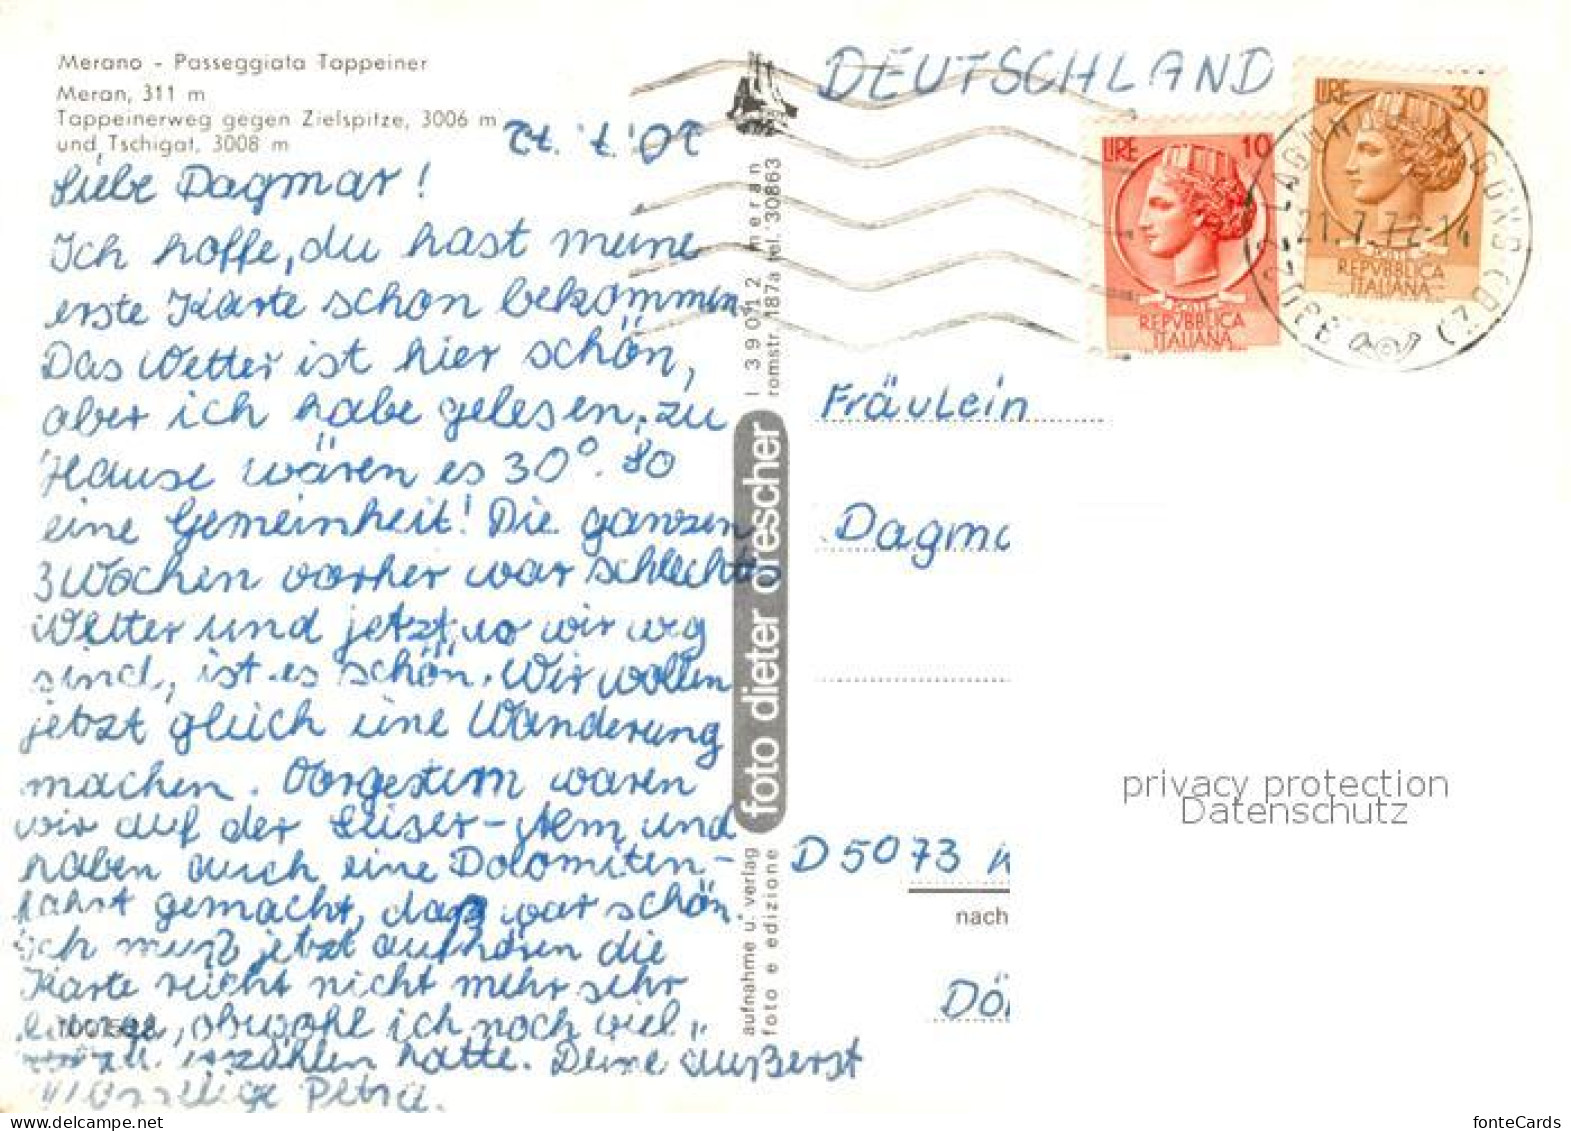 Merano - Passeggiata Tappeiner
Meran, 311 m
Tappeinerweg gegen Zielspitze, 3006 m
und Tschigat, 3008 m
20.7.72
Liebe Dagmar!
Ich hoffe, du hast meine
erste Karte schon bekommen.
Das Wetter ist hier schön,
aber ich habe gelesen, zu
Hause wären es 30°. So
eine Gemeinheit! Die ganzen
3 Wochen vorher war schlechtes
Wetter und jetzt, wo wir weg
sind, ist es schön. Wir wollen
jetzt gleich eine Wanderung
machen. Vorgestern waren
wir auf der Seiser-Alm, und
haben auch eine Dolomiten-
fahrt gemacht, daß war schön.
Ich muß jetzt aufhören die
Karte reicht nicht mehr sehr
lange, obwohl ich noch viel
zu erzählen hatte. Deine äußerst
Petra.
foto dieter drescher
I 39012 meran
romstr. 187a tel. 30863
aufnahme u. verlag
foto e edizione
DEUTSCHLAND
LIRE 10
REPVBBLICA
ITALIANA
LIRE 30
REPVBBLICA
ITALIANA
21.7.72-14
Fräulein
Dagma
D 5073
nach
Dö
privacy protection
Datenschutz
fonteCards